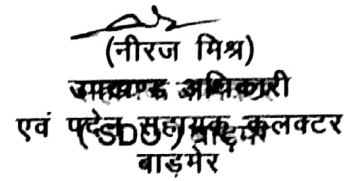 (नीरज मिश्र)
उपखण्ड अधिकारी
एवं पदेन सहायक कलक्टर
(SDO) बाड़मेर
बाड़मेर